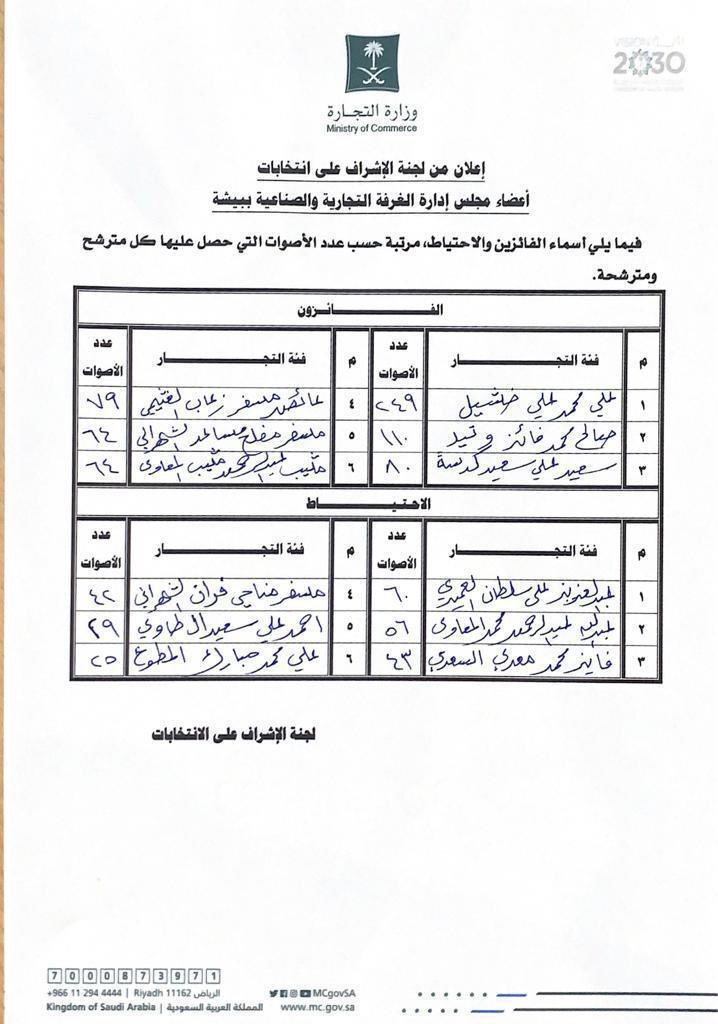 2030
وزارة التجارة
Ministry of Commerce
إعلان من لجنة الإشراف على انتخابات
أعضاء مجلس إدارة الغرفة التجارية والصناعية ببيشة
فيما يلي أسماء الفائزين والاحتياط، مرتبة حسب عدد الأصوات التي حصل عليها كل مترشح
ومترشحة.
الفـــائـزون
م فئة التجـــار عدد الأصوات م فئة التجـــار عدد الأصوات
١ علي محمد علي ٢٤٩ ٤ عائض مسفر ٧٩
٢ صالح محمد فائز ١١٠ ٥ مسفر مفلح مساعد الشهراني ٦٤
٣ سعيد علي سعيد كدسة ٨٠ ٦ متيب عبدالله محمد متيب المعاوي ٦٤
الاحتيـــاط
م فئة التجـــار عدد الأصوات م فئة التجـــار عدد الأصوات
١ عبدالعزيز علي سلطان ٦٠ ٤ مسفر مناحي الشهراني ٤٢
٢ عبدالله محمد محمد المعاوي ٥٦ ٥ احمد علي سعيد ال طاوي ٢٩
٣ فايز محمد معدي السعدي ٤٣ ٦ علي محمد مبارك المطوع ٢٥
لجنة الإشراف على الانتخابات
7000873971
+966 11 294 4444 | Riyadh 11162 الرياض
Kingdom of Saudi Arabia | المملكة العربية السعودية
MCgovSA
www.mc.gov.sa